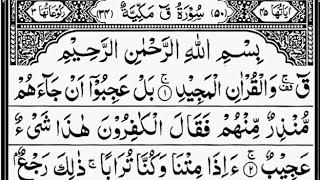 اٰیَاتُهَا ۴۵ (۵۰) سُوْرَةُ قٓ مَكِّيَّةٌ (۳۴) رُكُوْعَاتُهَا ۳
بِسْمِ اللّٰهِ الرَّحْمٰنِ الرَّحِيْمِ
قٓ ۚ وَالْقُرْاٰنِ الْمَجِيْدِ ۚ﴿۱﴾ بَلْ عَجِبُوْٓا اَنْ جَآءَهُمْ
مُّنْذِرٌ مِّنْهُمْ فَقَالَ الْكٰفِرُوْنَ هٰذَا شَیْءٌ
عَجِيْبٌ ۚ﴿۲﴾ ءَاِذَا مِتْنَا وَكُنَّا تُرَابًا ۚ ذٰلِكَ رَجْعٌۢ